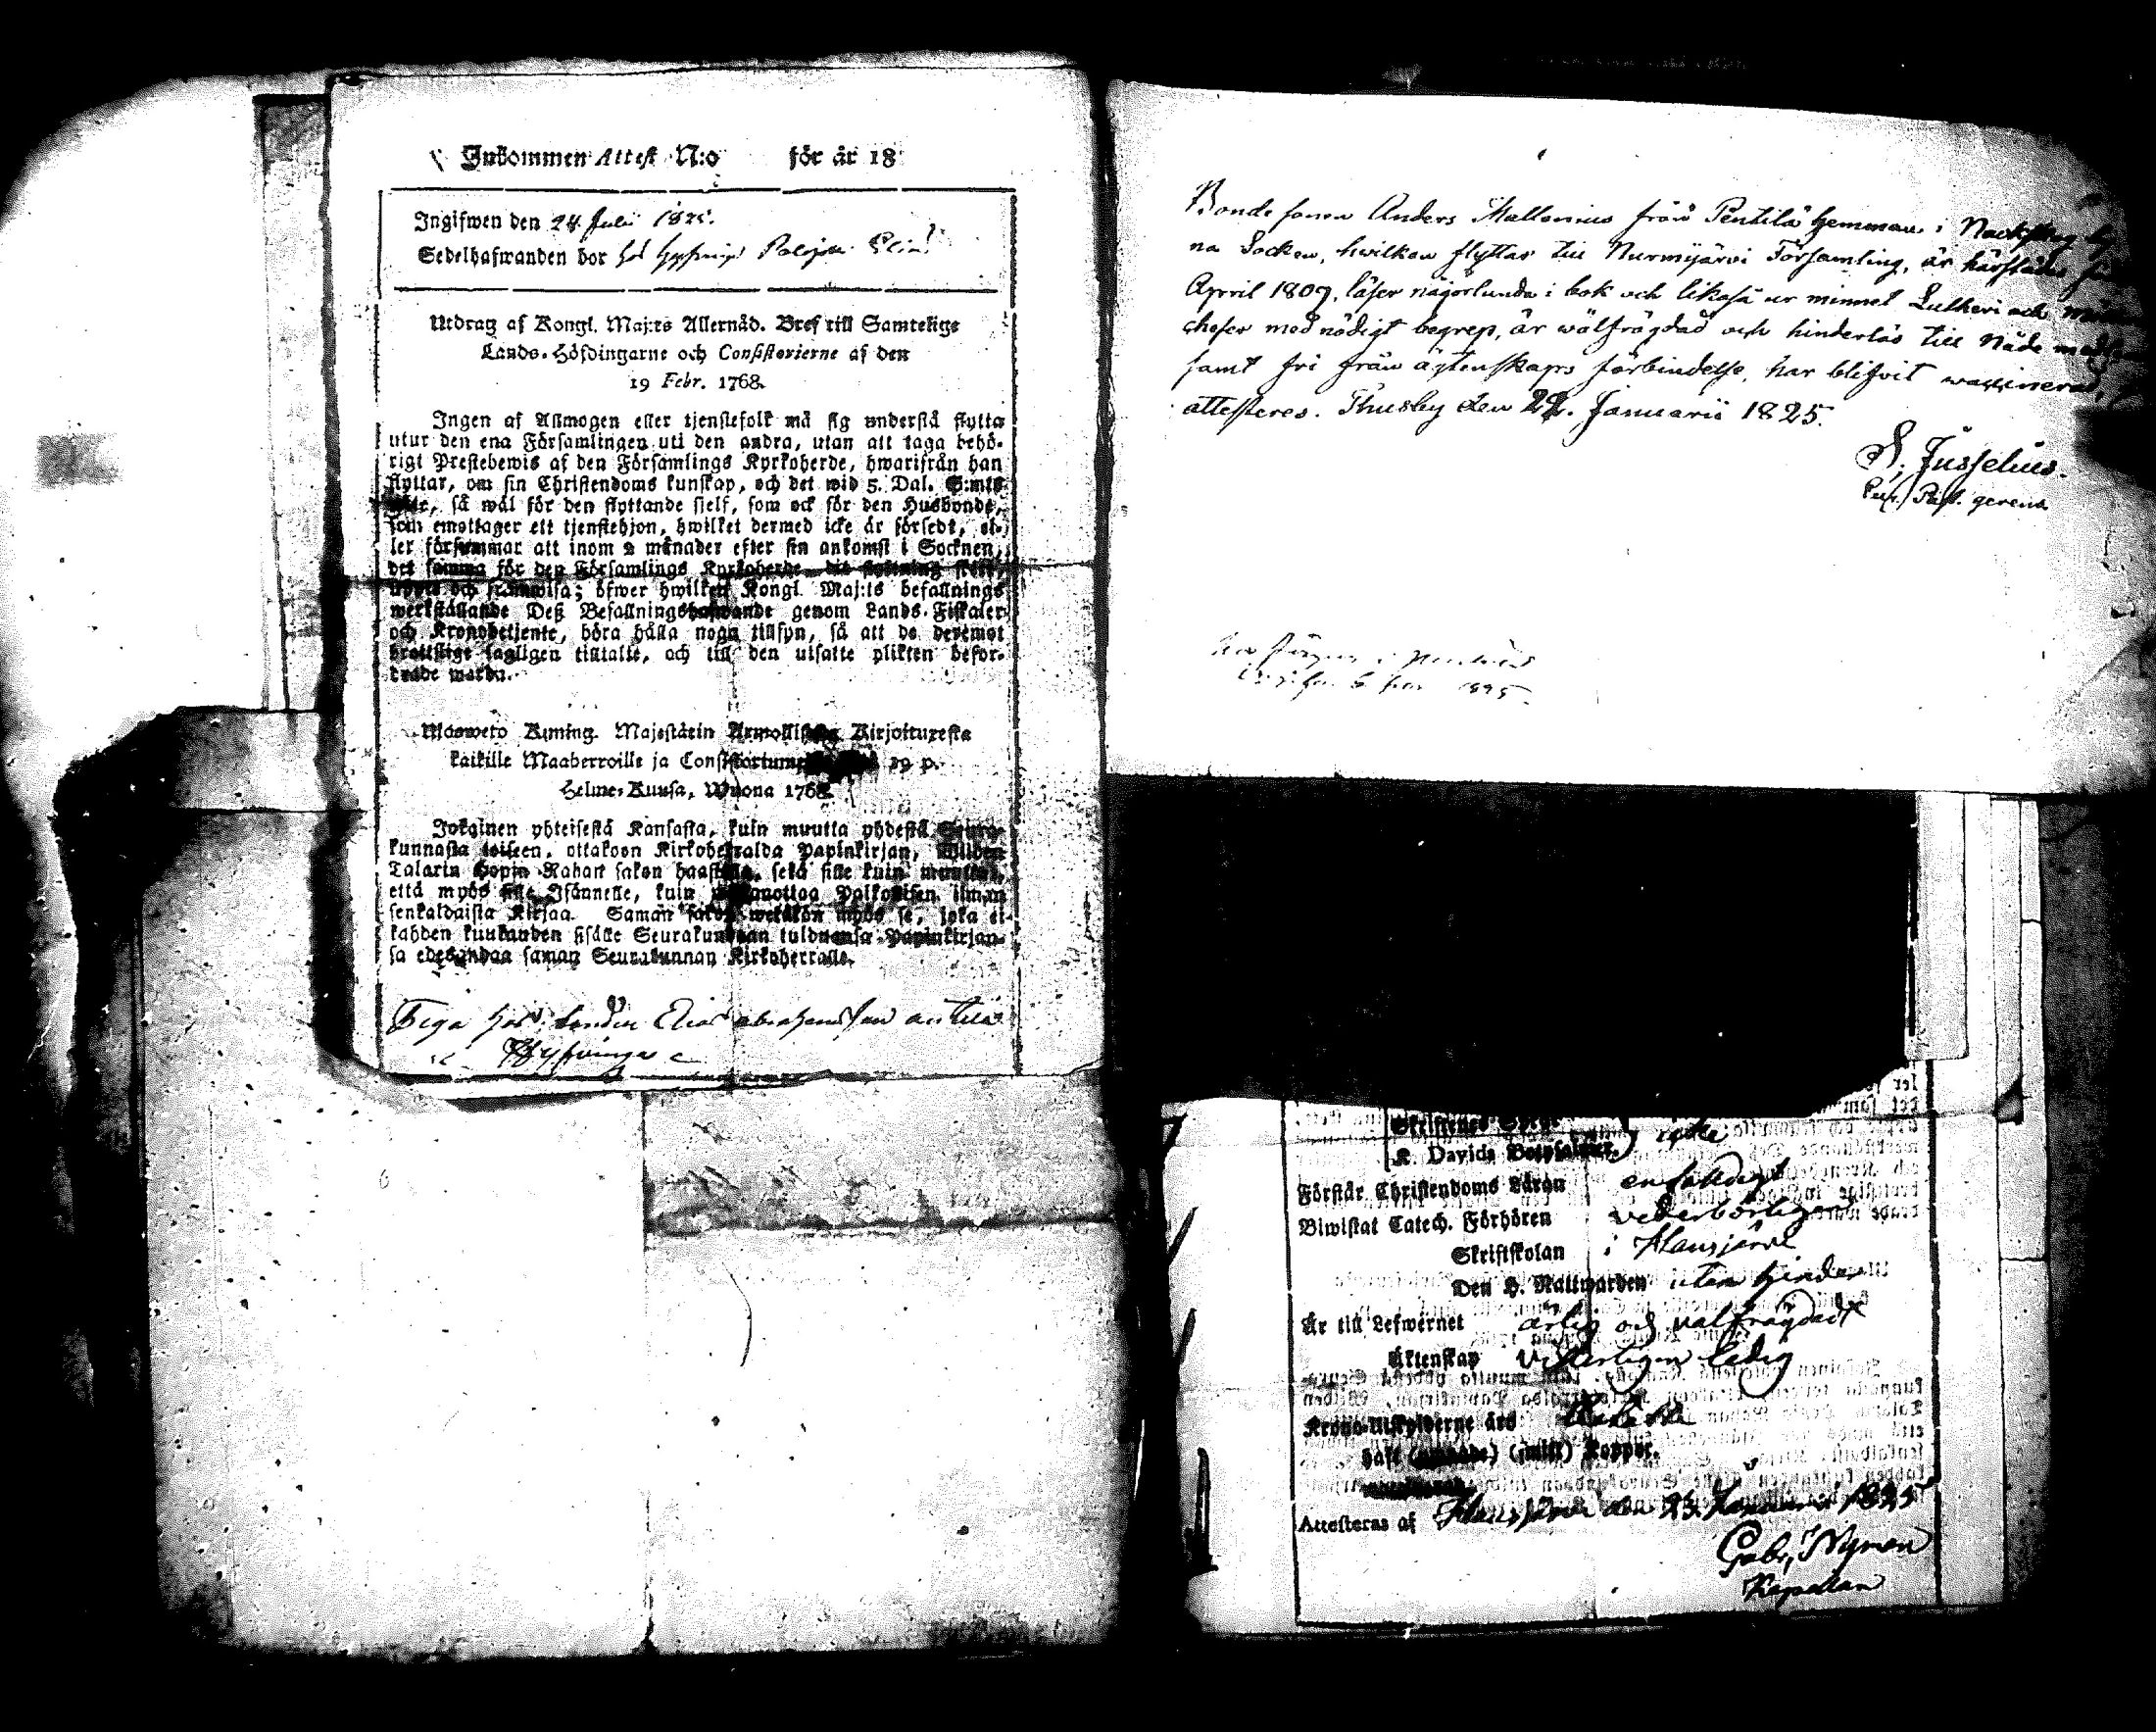 Inkommen Attest N:o för år 18
Ingifwen den 24 Juli 1825.
Sedelhafwanden bor hos
Utdrag af Kongl. Maj:ts Allernåd. Bref till Samtelige
Lands-Höfdingarne och Consistorierne af den
19 Febr. 1768.
Ingen af Allmogen eller tjenstefolk må sig understå flytta
utur den ena Församlingen uti den andra, utan att taga behö-
rigt Prestebewis af den Församlings Kyrkoherde, hwarifrån han
flyttar, om sin Christendoms kunskap, och det wid 5. Dal. S:mts
så wäl för den flyttande sjelf, som ock för den Husbonde,
som emottager ett tjenstehjon, hwilket dermed icke är försedt, el-
ler försummar att inom 2 månader efter sin ankomst i Socknen,
det samma för den Församlings Kyrkoherde
och framwisa; öfwer hwilken Kongl. Maj:ts befallnings
werkställande Deß Befallningshafwande genom Lands-Fiskaler
och Kronobetjente, böra hålla noga tillsyn, så att de deremot
brottslige lagligen tilltalte, och till den utsatte plikten befor-
drade warda.
Ulosweto Kuning. Majestätin Armollisesta Kirjoituxesta
kaikille Maaherroille ja Consistoriume 19 p.
Helme-Kuusa, Wuona 1768.
Jokainen yhteisestä Kansasta, kuin muutta yhdestä Seura-
kunnasta toiseen, ottakoon Kirkoherralda Papinkirjan, Wiiden
Talarin Hopia Rahan sakon haastolla, sekä sille kuin muuttaa,
että myös sille Isännelle, kuin wastaanottaa Palkollisen ilman
senkaldaista Kirjaa. Saman sakon wetäkön myös se, joka ei
kahden kuukauden sisälle Seurakundaan tulduansa Papinkirjan-
sa edesandaa saman Seurakunnan Kirkoherralle.
hos bonden Elias abrahamsson anttila
Hyfvinge
Bonde sonen Anders Mattsonius från Pentilä hemman i
na Socken, hwilken flyttar till Nurmijärvi Församling, är härstädes
April 1807, läser någorlunda i bok och likaså ur minnet Lutheri och
cheser med nödigt begrep, är wälfrägdad och hinderlös till Nåde
samt fri från ägtenskaps förbindelse, har blifvit waxinerad,
attesteres. Thusby den 22. Januarii 1825.
S. Jusselius.
Past. gerens
1825
Skriftenes
K. Davids Botpsalmer. icke
Förstår Christendoms Läran enfaldigt
Biwistat Catech. Förhören vederbörligen
Skriftskolan i Hausjärvi
Den H. Nattwarden utan hinder
Är till Lefwernet ärlig och välfrägdad
Äktenskap vitterligen ledig
Krono-Utskylderne års
haft Koppor.
Attesteras af Hausjärvi den 23 Januarii 1825
Gabr. Nyman
Kapellan